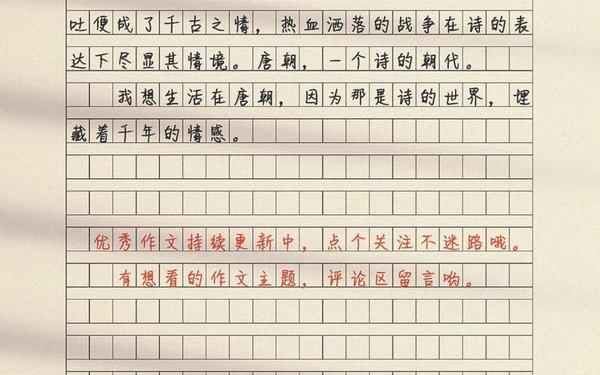 吐便成了千古之情，热血洒落的战争在诗的表
达下尽显其情境。唐朝，一个诗的朝代。
我想生活在唐朝，因为那是诗的世界，埋
藏着千年的情感。
优秀作文持续更新中，点个关注不迷路哦。
有想看的作文主题，评论区留言哟。